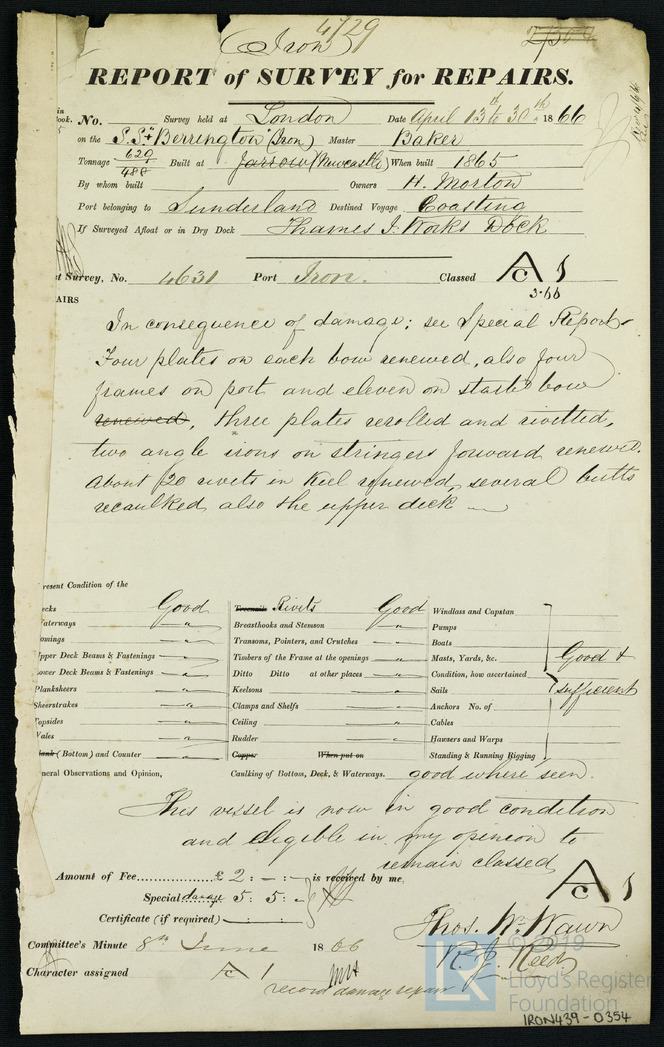 4729
(Iron)
REPORT of SURVEY for REPAIRS.
No. Survey held at London Date April 13th & 30th 1866
on the S.S. "Berrington" (Iron) Master Baker
Tonnage 629 / 488 Built at Jarrow (Newcastle) When built 1865
By whom built Owners H. Morton
Port belonging to Sunderland Destined Voyage Coasting
If Surveyed Afloat or in Dry Dock Thames I. Works Dock
t Survey, No. 4631 Port Iron. Classed A C 1
3.66
AIRS
In consequence of damage; see Special Report
Four plates on each bow renewed, also four
frames on port and eleven on starbd bow
renewed, three plates rerolled and rivetted,
two angle irons on stringers forward renewed.
About 120 rivets in Keel renewed, several butts
recaulked also the upper deck
resent Condition of the
ecks Good
aterways "
omings "
pper Deck Beams & Fastenings "
ower Deck Beams & Fastenings "
Planksheers "
Sheerstrakes "
Topsides "
Wales "
lank (Bottom) and Counter "
Treenails Rivets Good
Breasthooks and Stemson "
Transoms, Pointers, and Crutches "
Timbers of the Frame at the openings "
Ditto Ditto at other places "
Keelsons "
Clamps and Shelfs "
Ceiling "
Rudder "
Copper When put on
Windlass and Capstan
Pumps
Boats
Masts, Yards, &c. Good &
Condition, how ascertained
Sails sufficient
Anchors No. of
Cables
Hawsers and Warps
Standing & Running Rigging
neral Observations and Opinion, Caulking of Bottom, Deck, & Waterways. good where seen.
This vessel is now in good condition
and eligible in my openion to
remain classed A C 1
Amount of Fee £ 2 : - : - is received by me,
Special damage 5 : 5 : -
Certificate (if required) - : - : -
Thos. W. Wawn
Committee's Minute 8th June 1866
R. J. Reed
Character assigned A C 1
record damage repair
© 2019
LR
Lloyd's Register
Foundation
IRON439-0354